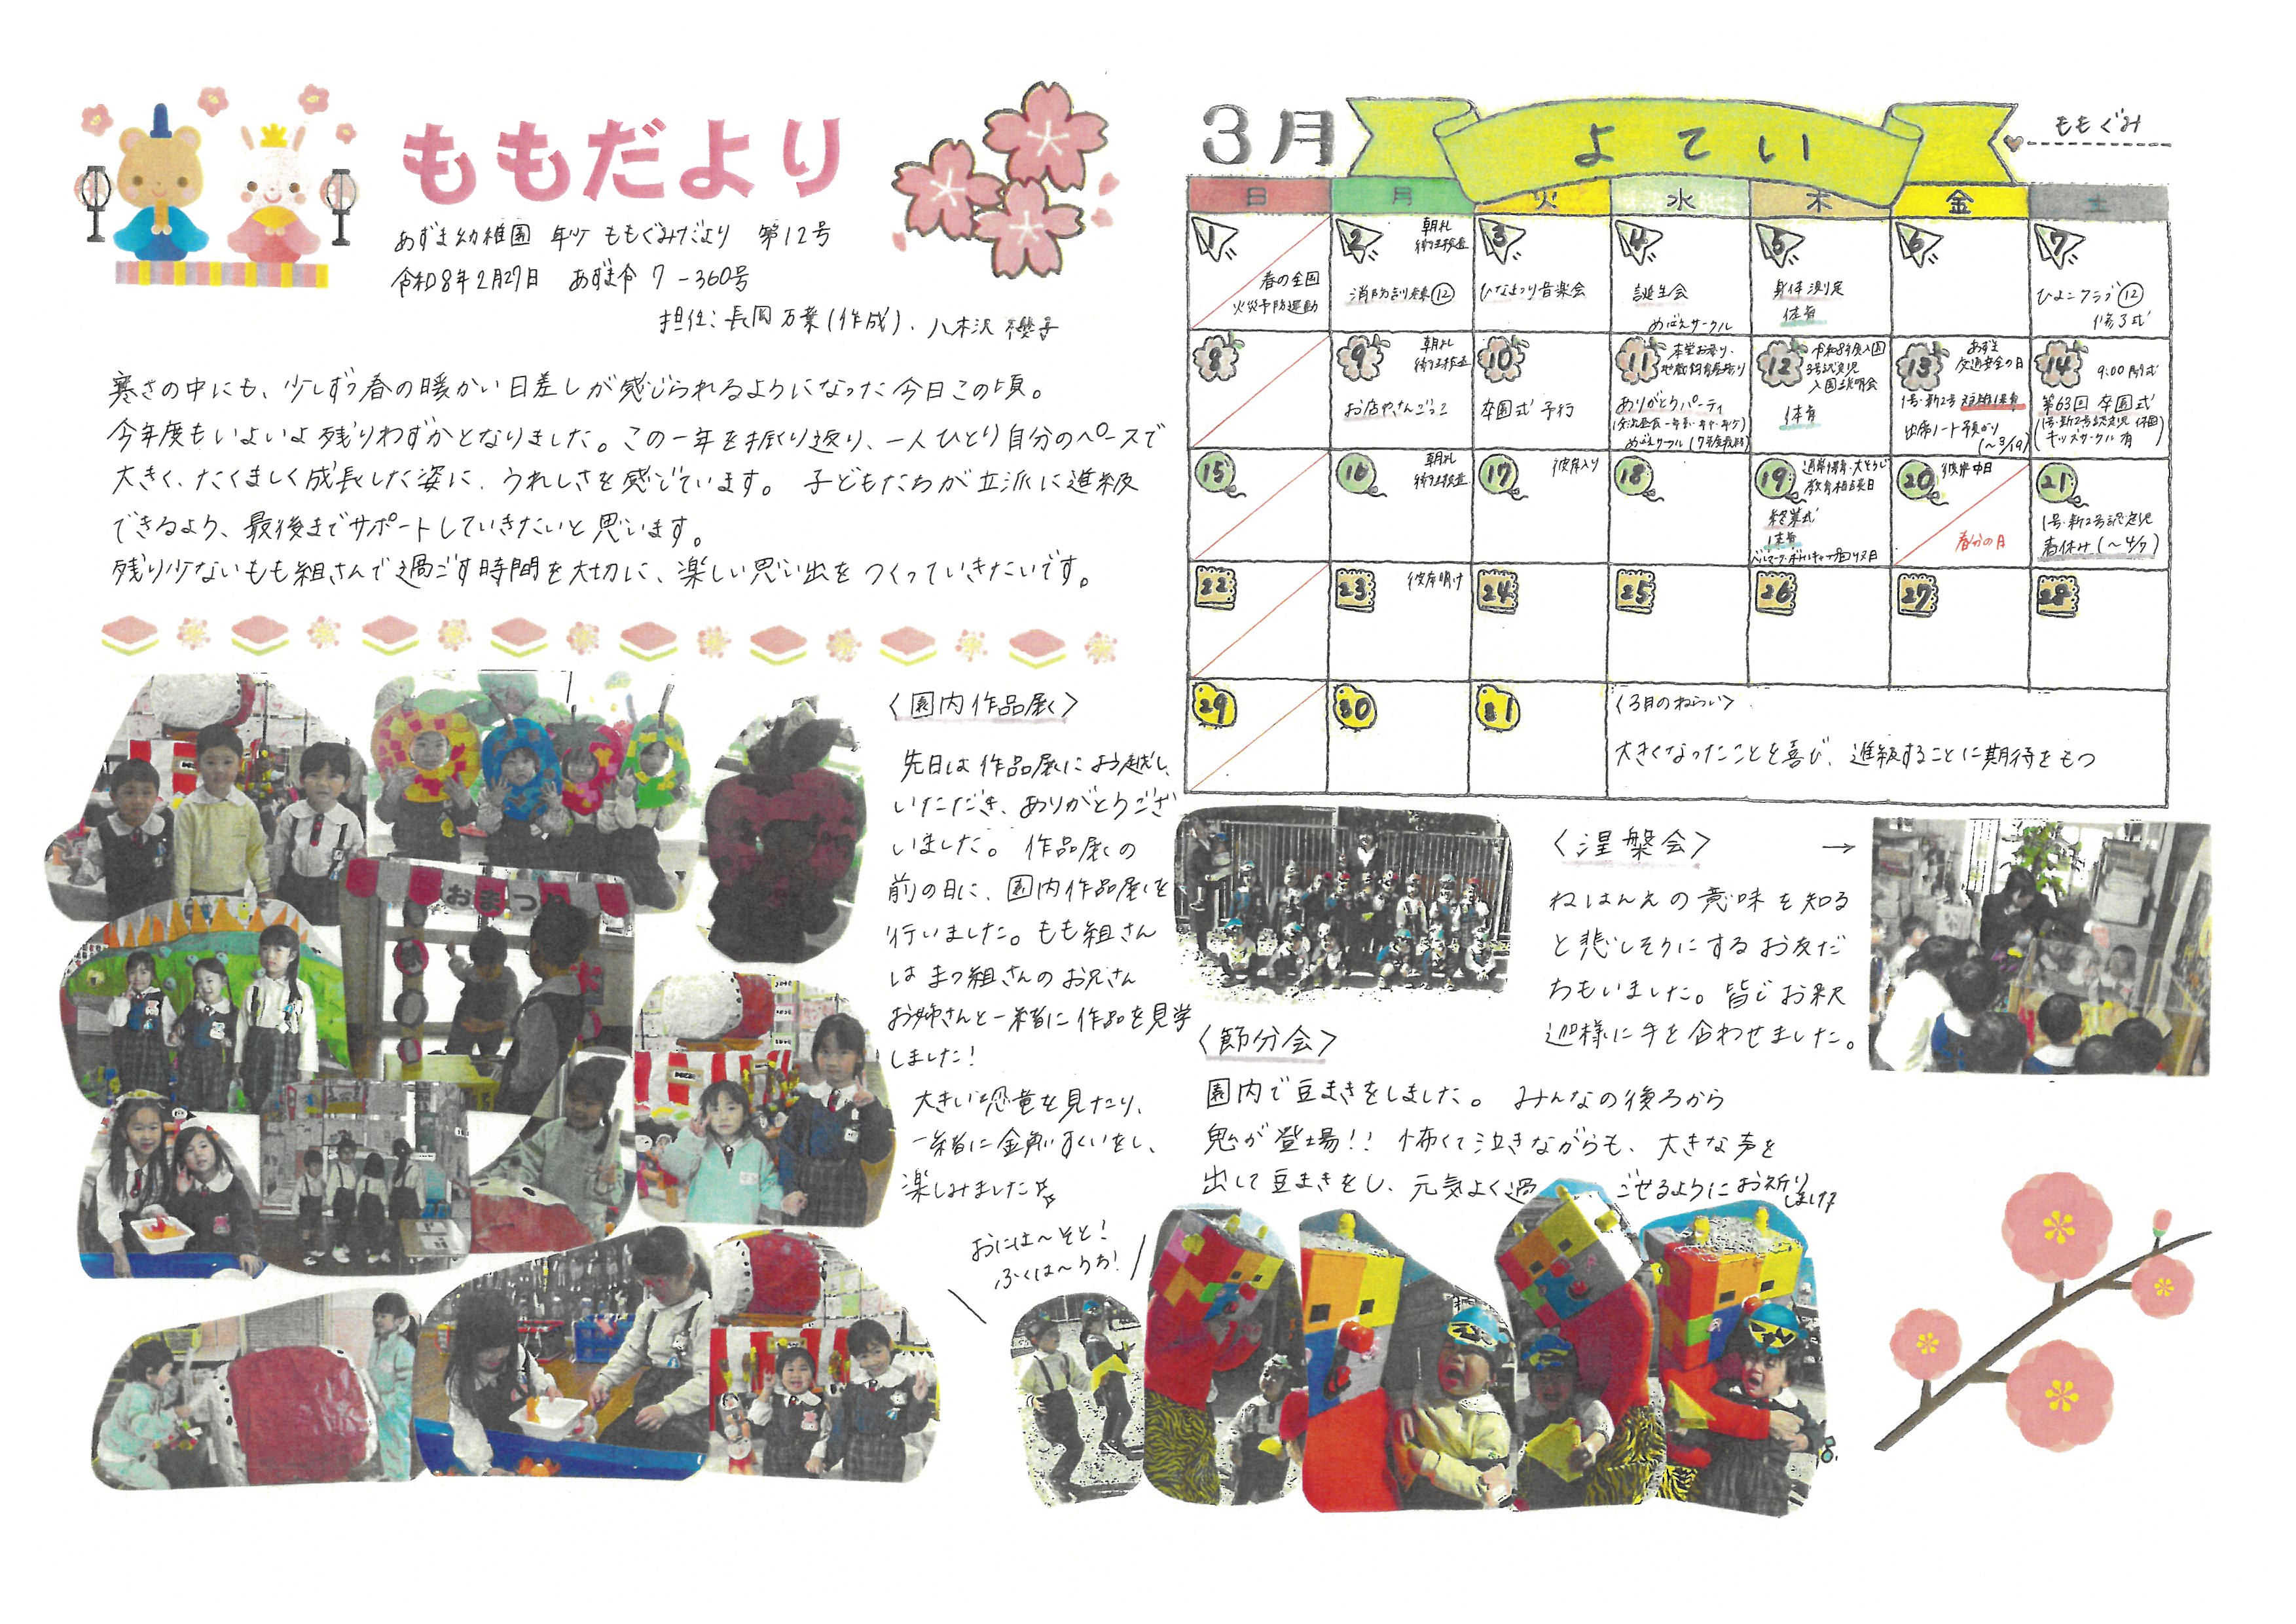 ももだより
あずま幼稚園 年少 ももぐみだより 第12号
令和8年2月27日 あずま令7-360号
担任：長岡万葉(作成)・八木沢 櫻子
寒さの中にも、少しずつ春の暖かい日差しが感じられるようになった今日この頃。
今年度もいよいよ残りわずかとなりました。この一年を振り返り、一人ひとり自分のペースで
大きく、たくましく成長した姿に、うれしさを感じています。 子どもたちが立派に進級
できるよう、最後までサポートしていきたいと思います。
残り少ないもも組さんで過ごす時間を大切に、楽しい思い出をつくっていきたいです。
〈園内作品展〉
先日は作品展にお越し
いただき、ありがとうござ
いました。 作品展の
前の日に、園内作品展を
行いました。もも組さん
はまつ組さんのお兄さん
お姉さんと一緒に作品を見学
しました！
大きい恐竜を見たり、
一緒に金魚すくいをし、
楽しみました
おまつ
3月 よてい
ももぐみ
日 月 火 水 木 金 土
1
春の全国
火災予防運動
2 朝礼
衛生検査
消防訓練⑫
3
ひなまつり音楽会
4
誕生会
めばえサークル
5
身体測定
体育
6
7
ひよこクラブ⑫
修了式
8
9 朝礼
衛生検査
お店やさんごっこ
10
卒園式予行
11 本堂お参り・
ありがとうパーティ
めばえサークル
12 令和8年度入園
3号認定児
入園説明会
体育
13 あずま
交通安全の日
1号・新2号 短縮保育
出席ノート預かり
(～3/19)
14 9:00開式
第63回 卒園式
(1号・新2号認定児 休園)
キッズサークル有
15
16 朝礼
衛生検査
17 彼岸入り
18
19 通常保育・大そうじ
教育相談日
終業式
体育
ベルマーク・ボトルキャップ回収日
20 彼岸中日
春分の日
21
1号・新2号認定児
春休み(～4/7)
22
23 彼岸明け
24
25
26
27
28
29
30
31
〈3月のねらい〉
大きくなったことを喜び、進級することに期待をもつ
〈涅槃会〉 →
ねはんえの意味を知る
と悲しそうにするお友だ
ちもいました。皆でお釈
迦様に手を合わせました。
〈節分会〉
園内で豆まきをしました。 みんなの後ろから
鬼が登場!! 怖くて泣きながらも、大きな声を
出して豆まきをし、元気よく過ごせるようにお祈りしました
おには～そと！
ふくは～うち！